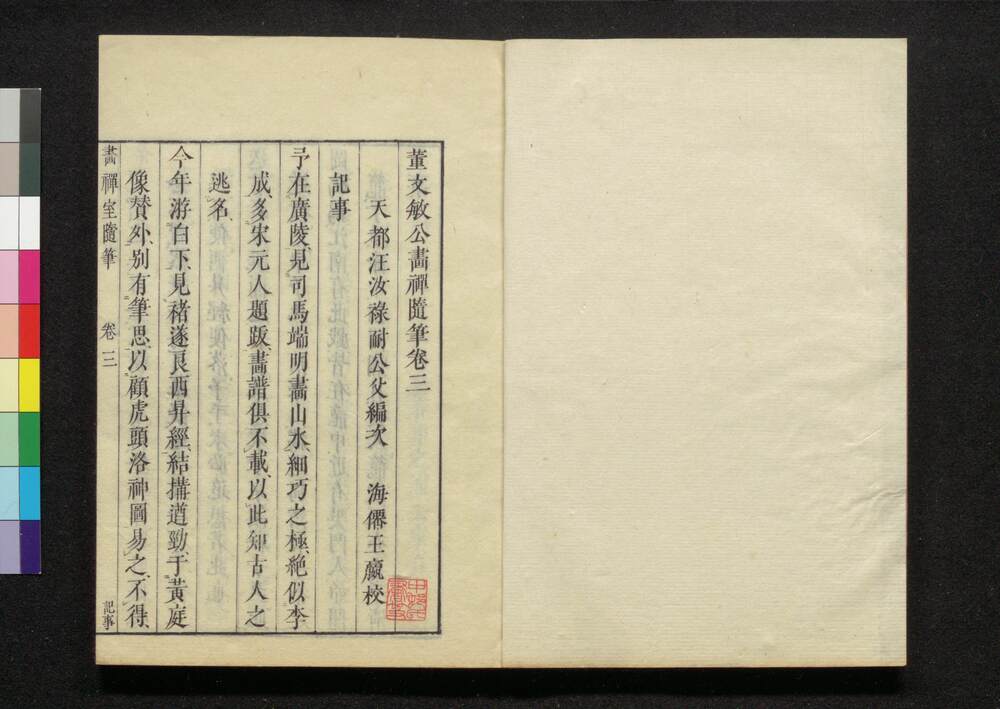 董文敏公畵禪隨筆卷三
天都汪汝祿耐公父編次 海儒王瀛校
記事
予在廣陵見司馬端明畵山水細巧之極絶似李
成多宋元人題跋畵譜俱不載以此知古人之
逃名
今年游白下見褚遂良西昇經結搆遒勁于黃庭
像賛外別有筆思以顧虎頭洛神圖易之不得
畵禪室隨筆 卷三 記事